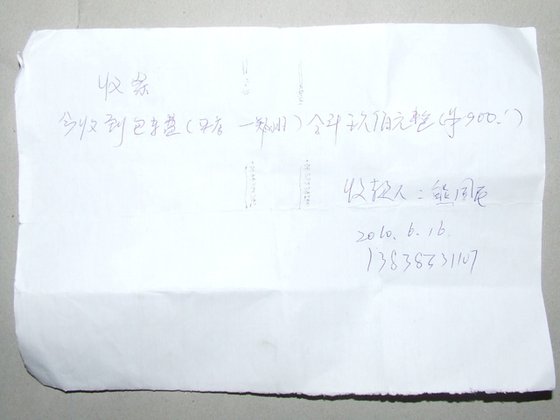 收条
今收到包车费(平店 一郑州)合计玖佰元整(¥900.)
收款人:
2010.6.16
13838531107